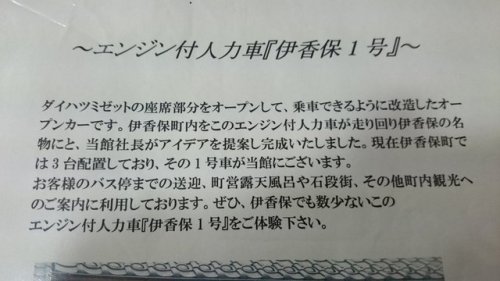 ～エンジン付人力車『伊香保1号』～
ダイハツミゼットの座席部分をオープンして、乗車できるように改造したオー
プンカーです。伊香保町内をこのエンジン付人力車が走り回り伊香保の名
物にと、当館社長がアイデアを提案し完成いたしました。現在伊香保町で
は3台配置しており、その1号車が当館にございます。
お客様のバス停までの送迎、町営露天風呂や石段街、その他町内観光へ
のご案内に利用しております。ぜひ、伊香保でも数少ないこの
エンジン付人力車『伊香保1号』をご体験下さい。